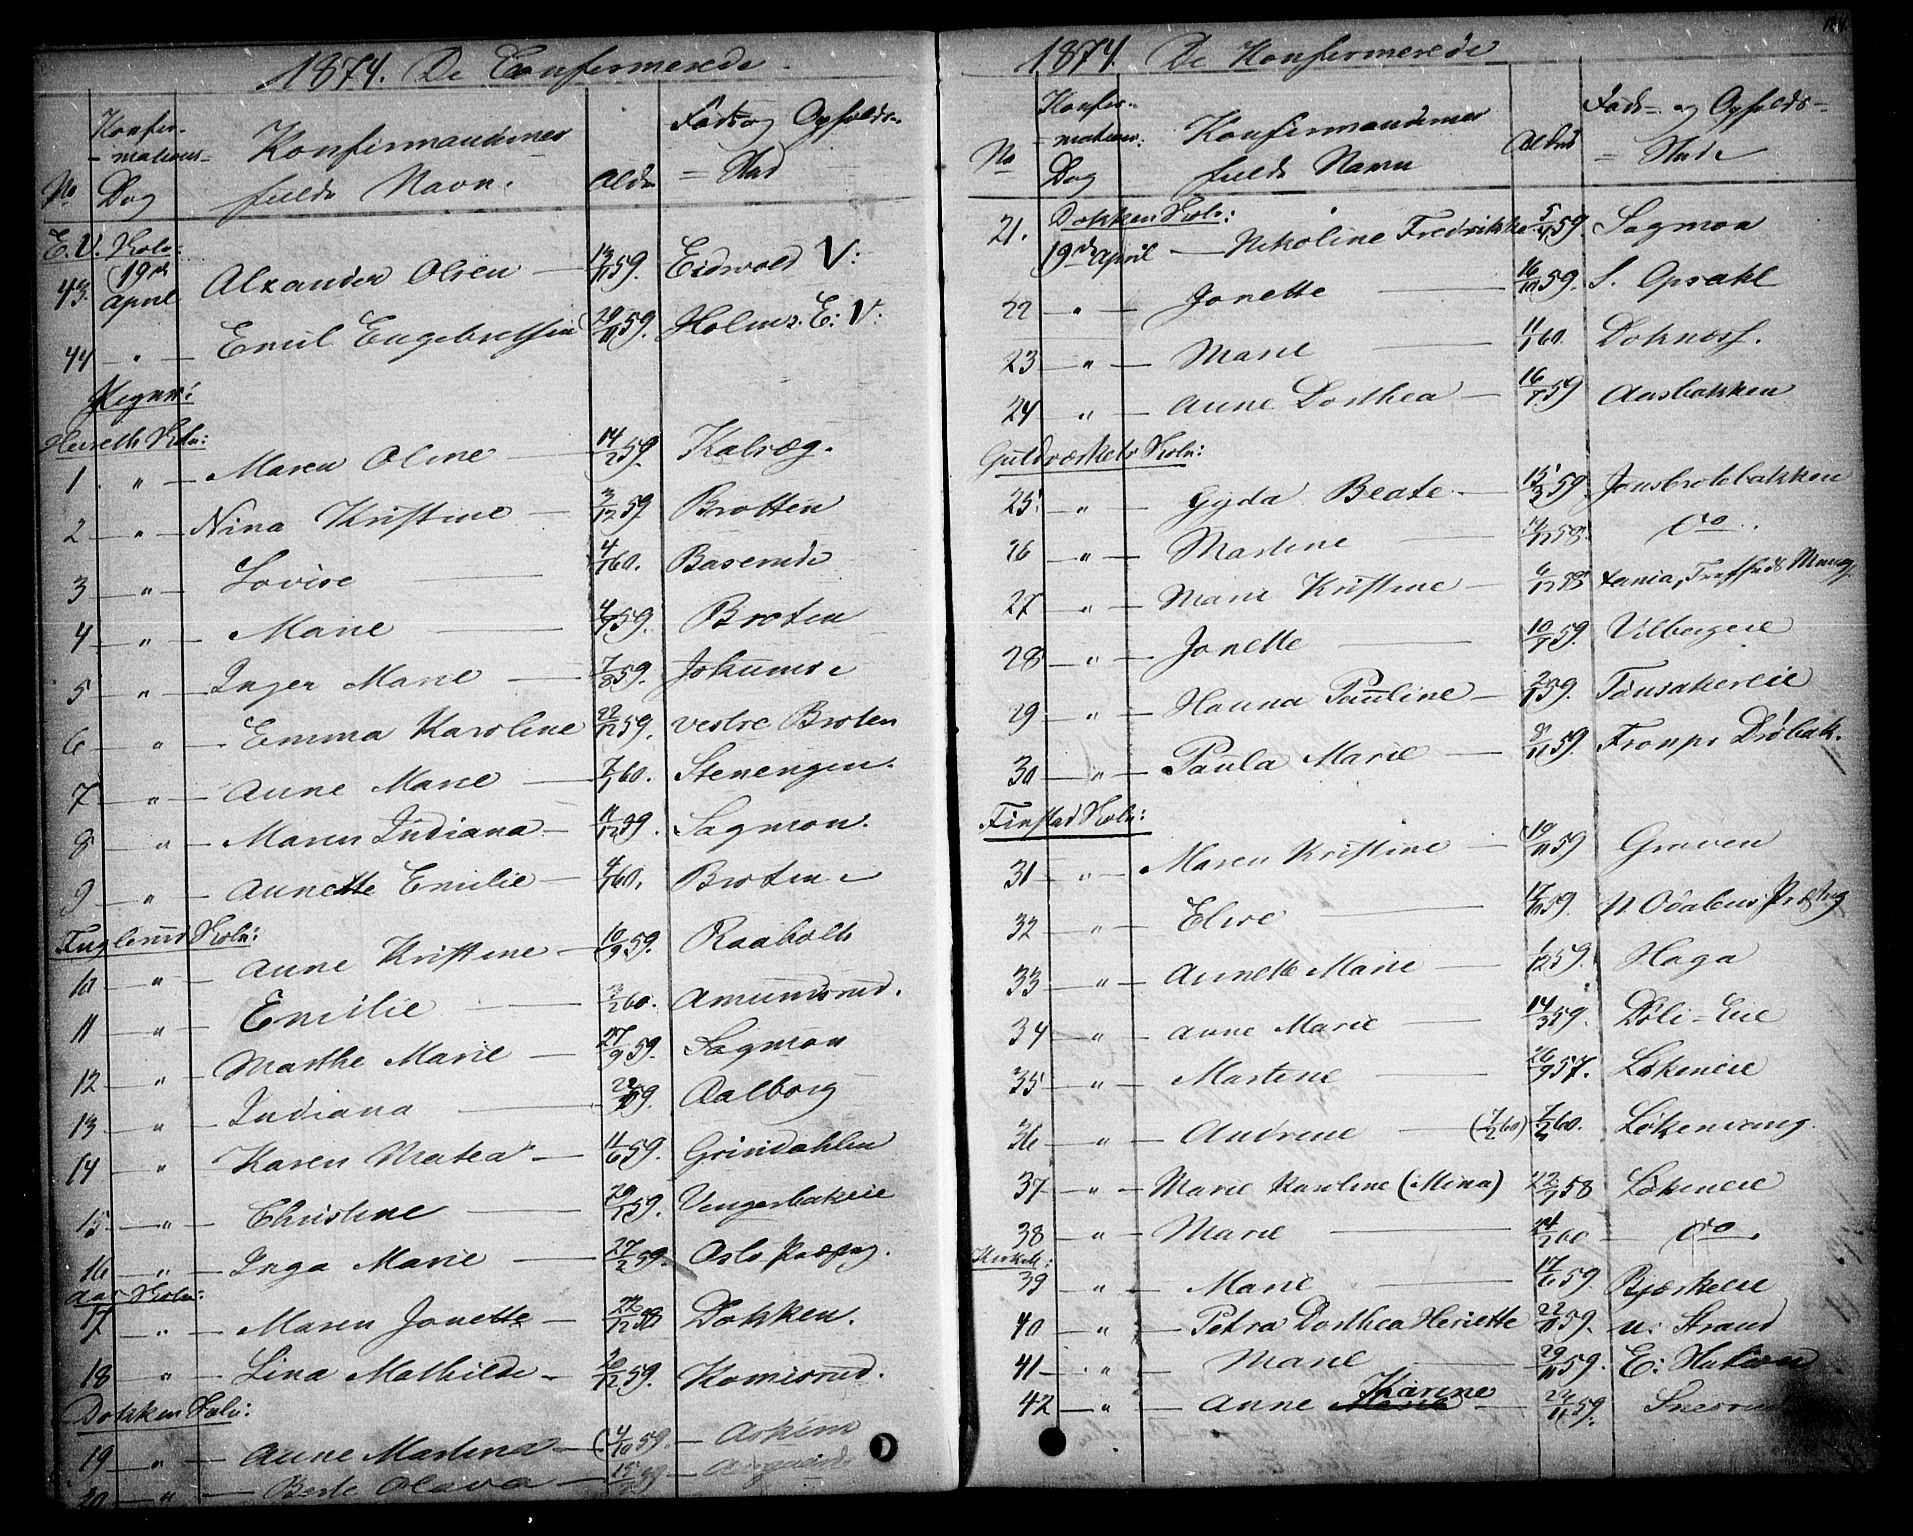 1874. De Confirmerede.
No
Konfir-
-mations-
Dag
Konfirmandernes
fulde Navn.
Alder
Føds og Opfolds-
= Sted
E. V. Kols:
43. 19de April Alxander Olsen — 13/11 59. Eidsvold V:
44 " — Emil Engebretsen 29/11 59. Holms. E: V:
Piger:
Herseth Skole:
1 " — Maren Oline — 14/2 59. Kalvæg.
2 — " — Nina Kristine — 3/12 59. Brotten
3 — " — Lovise — 4/1 60. Baserude
4 — " — Marie — 4/7 59. Broten
5 " — Inger Marie — 7/8 59. Jokumse
6 — " — Emma Karoline 22/12 59. vestre Broten
7 — " — Anne Marie — 7/1 60. Stenengen.
8 — " — Maren Indiana — 11/12 59. Sagmon.
9 — " — Annette Emilie — 4/1 60. Broten
Fuglerud Skole:
10 — " — Anne Kristine — 10/9 59. Raaholts
11 — " — Emilie — 3/2 60. Amundsrud.
12 — " — Marthe Marie — 27/9 59. Sagmon
13 — " — Indiana — 22/ 59. Aalborg
14 " — Karen Matea — 11/6 59. Grindahlen
15 — " — Christine — 29/ 59. Vengerbakeie
16 — " — Inga Marie — 27/2 59. Oslo Præstg.
Aas Skole:
17 — " — Maren Jonette — 22/12 58 Dokken.
18 — " — Lina Mathilde — /12 59. Komisrud.
Dokken Skole:
19 — " — Anne Martina — 4/10 59. —
20 — " — Berte Olava — 15/ 59 —
1874. De Konfirmerede
No
Konfir-
-mations:
Dag
Konfirmandernes
fulde Navn
Alder
Føds- og Opfolds-
= Stede
21. Dokken Skole:
19de April — Nikoline Fredrikke 5/4 59. Sagmoa
22 " — Jonette — 16/10 59. S. Opsahl
23 — " — Marie — 11/1 60. Doknæss.
24 " — Anne Dorthea — 16/7 59 Aasbakken
Guldværkets Skole:
25. — " — Gyda Beate — 15/3 59. Jonsbrotebakken
26 — " — Martine — 14/12 58. do.
27 — " — Marie Kristine — 6/12 58
28 — " — Jonette — 10/9 59. Vilbergeie
29 — " — Hanna Pauline — 2/1 59. Tønsakereie
30 — " — Paula Marie — 8/11 59. Fronpr Drøbak.
Finstad Skole:
31 — " — Maren Kristine — 19/11 59 Graven
32 — " — Elise — 17/10 59. N. Odalens Præstg
33 — " — Annette Marie — 1/12 59. Haga
34 — " — Anne Marie — 14/3 59. Døli-Eie
35 — " — Martine — 26/9 57. Løkeneie
36 — " — Andrene — (7/2 60) 7/2 60. Løkenvang.
37 — " — Marie Karline (Mina) 22/9 58 Løkeneie
38 — " — Marie — 24/2 60 — do.
Kirkeb:
39 — " — Marie — 17/6 59. Bjerkeeie
40 — " — Petra Dorthea Heriette 22/11 59. n: Strand
41 — " — Marie — 29/11 59. E:
42 — " — Anne Karine — 22/11 59.